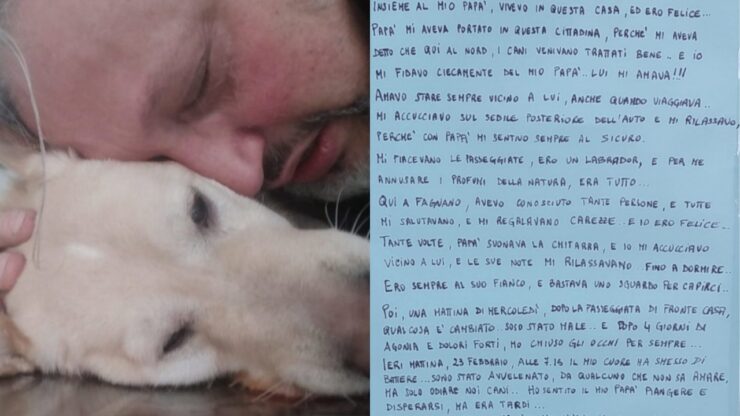 INSIEME AL MIO PAPA', VIVEVO IN QUESTA CASA, ED ERO FELICE...
PAPA' MI AVEVA PORTATO IN QUESTA CITTADINA, PERCHE' MI AVEVA
DETTO CHE QUI AL NORD, I CANI VENIVANO TRATTATI BENE.. E IO
MI FIDAVO CIECAMENTE DEL MIO PAPA'.. LUI MI AMAVA!!!
AMAVO STARE SEMPRE VICINO A LUI, ANCHE QUANDO VIAGGIAVA..
MI ACCUCCIAVO SUL SEDILE POSTERIORE DELL'AUTO E MI RILASSAVO,
PERCHE' CON PAPA' MI SENTIVO SEMPRE AL SICURO.
MI PIACEVANO LE PASSEGGIATE, ERO UN LABRADOR, E PER ME
ANNUSARE I PROFUMI DELLA NATURA, ERA TUTTO...
QUI A FAGNANO, AVEVO CONOSCIUTO TANTE PERSONE, E TUTTE
MI SALUTAVANO, E MI REGALAVANO CAREZZE.. E IO ERO FELICE..
TANTE VOLTE, PAPA' SUONAVA LA CHITARRA, E IO MI ACCUCCIAVO
VICINO A LUI, E LE SUE NOTE MI RILASSAVANO.. FINO A DORMIRE..
ERO SEMPRE AL SUO FIANCO, E BASTAVA UNO SGUARDO PER CAPIRCI..
POI, UNA MATTINA DI MERCOLEDI', DOPO LA PASSEGGIATA DI FRONTE CASA,
QUALCOSA E' CAMBIATO.. SONO STATO MALE.. E DOPO 4 GIORNI DI
AGONIA E DOLORI FORTI, HO CHIUSO GLI OCCHI PER SEMPRE...
IERI MATTINA, 23 FEBBRAIO, ALLE 7.15 IL MIO CUORE HA SMESSO DI
BATTERE...SONO STATO AVVELENATO, DA QUALCUNO CHE NON SA AMARE,
MA SOLO ODIARE NOI CANI.. HO SENTITO IL MIO PAPA' PIANGERE E
DISPERARSI, MA ERA TARDI...